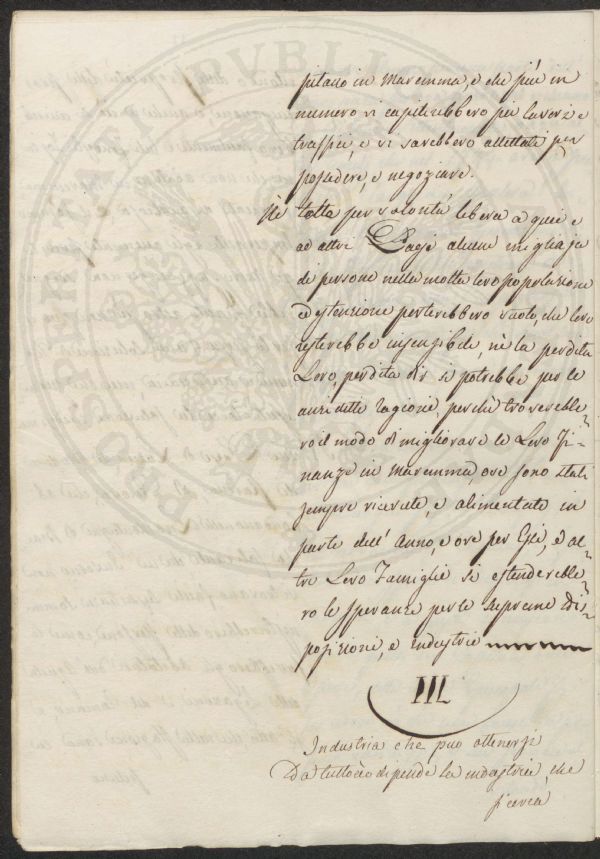 PROSPERITATI PVBLICAE
pitano in Maremma, e che più in
numero vi capiterebbero pei lavori e
traffici, e vi sarebbero allettati per
possedere, e negoziare.
Nè tolta per volontà libera a quei e
ad altri Paesi alcune migliaja
di persone nella molta loro popolazione
ed estensione porterebbero vuoto, che loro
resterebbe insensibile, nè la perdita
Loro, perdita dir si potrebbe per le
anzidette ragioni, perchè troverebbe-
ro il modo di migliorare le Loro Fi-
nanze in Maremma, ove sono stati
sempre ricevute, e alimentate in
parte dell' Anno, e ove per Essi, ed al-
tre Loro Famiglie si estenderebbe-
ro le speranze per le Supreme dis-
posizioni, e industrie
III
Industria che può ottenersi
Da tuttociò dipende la industria, che
si cerca